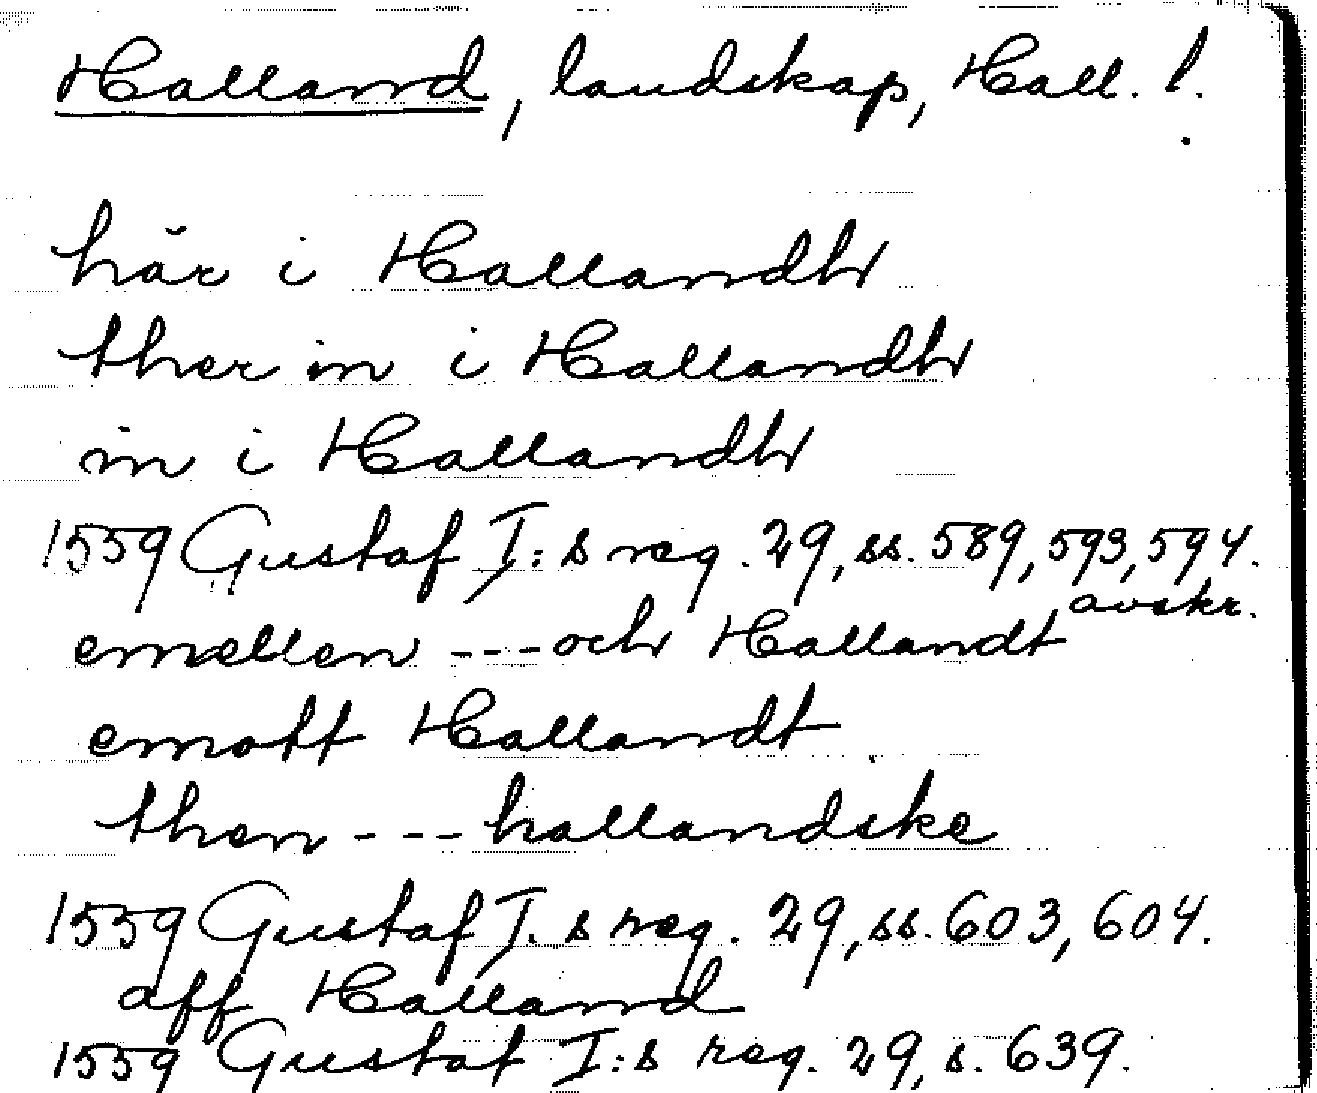 Halland, landskap, Hall. l.
här i Hallandh
ther in i Hallandh
in i Hallandh
1559 Gustaf I:s reg. 29, ss. 589, 593, 594.
avskr.
emellen --- och Hallandt
emott Hallandt
then --- hallandske
1559 Gustaf I.s reg. 29, ss. 603, 604.
aff Halland
1559 Gustaf I:s reg. 29, s. 639.